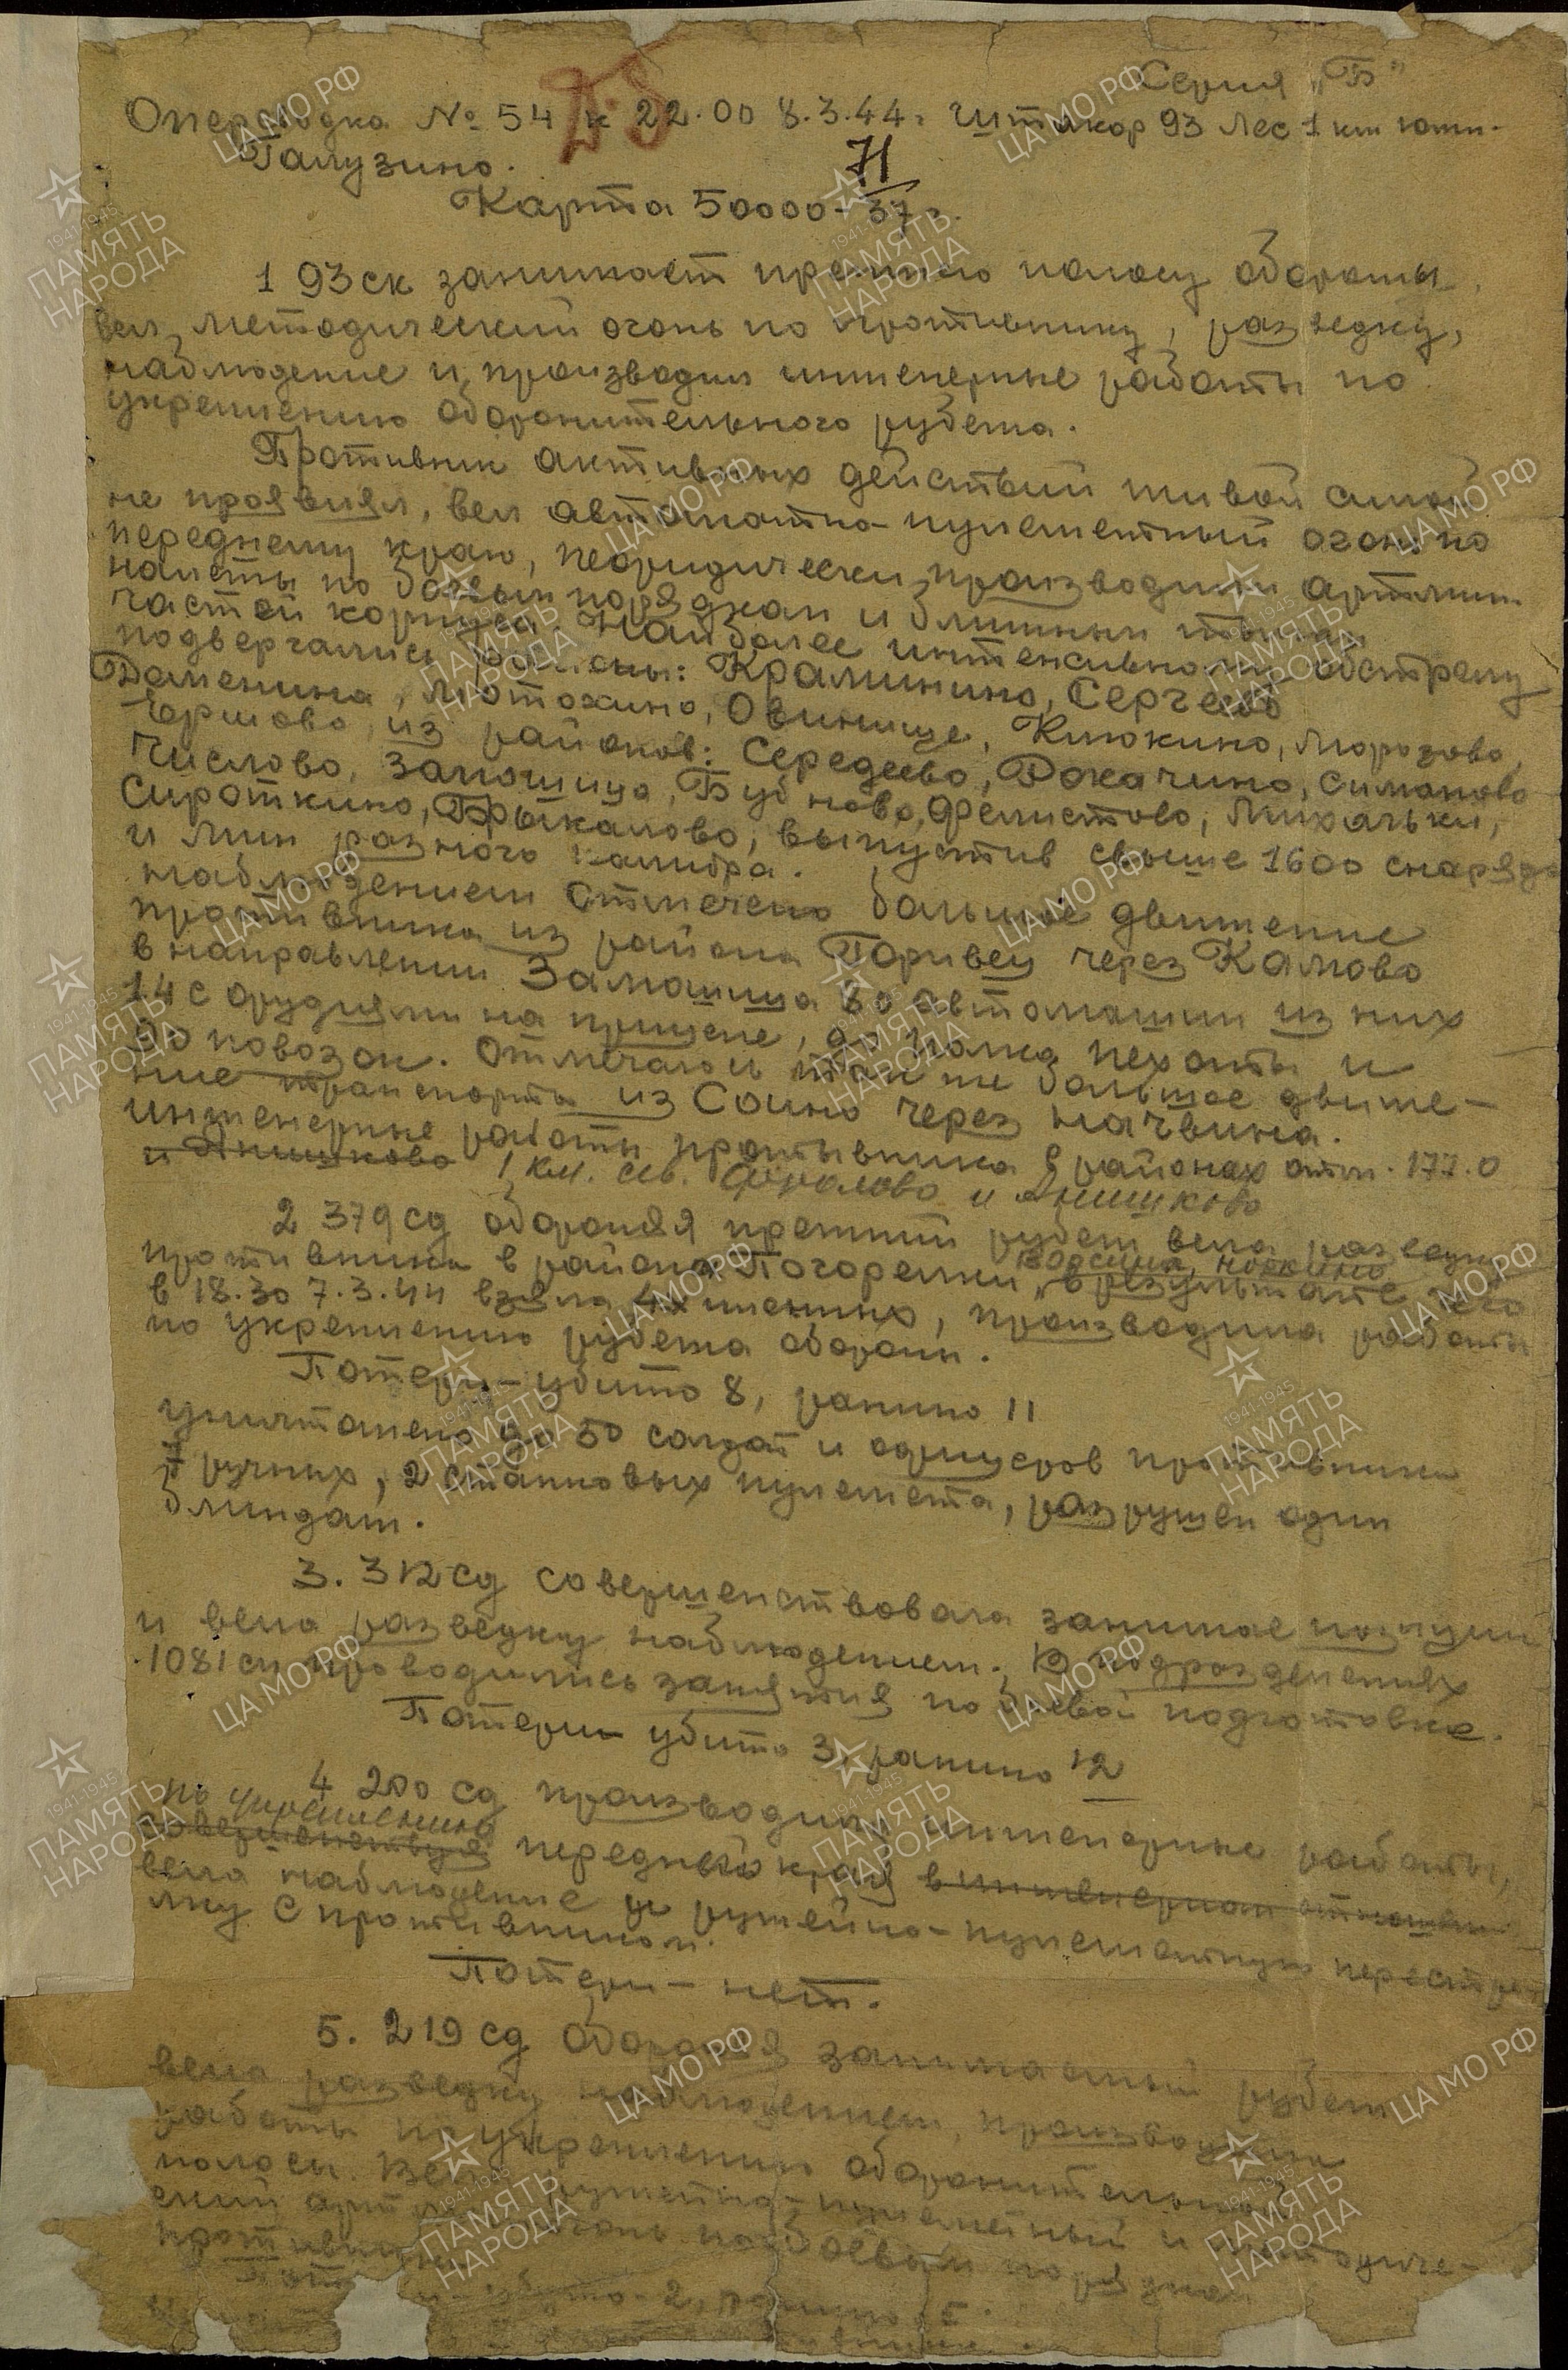 Серия „Б"
Оперсводка № 54 к 22.00 8.3.44г. Штакор 93 Лес 1 км южн.
Галузино.
71
Карта 50000-37г.
1 93 ск занимает прежнюю полосу обороны,
вел методический огонь по противнику, разведку,
наблюдение и производил инженерные работы по
укреплению оборонительного рубежа.
Противник активных действий живой силой
не проявлял, вел автоматно-пулеметный огонь по
переднему краю, периодически производил артмин.
налеты по боевым порядкам и ближним тылам
частей корпуса. Наиболее интенсивному обстрелу
подвергались районы: Краминино, Сергеево
Деменина, Мотохино, Овинище, Клюкино, Морозово,
Ершово, из районов: Середеево, Рокачино, Симоново
Числово, Замошица, Бубново, Фелистово, Михальки,
Сироткино, Брыкалово, выпустив свыше 1600 снарядо
и мин разного калибра.
Наблюдением отмечено большое движение
противника из района Поривец через Камово
в направлении Замошица 80 автомашин из них
14 с орудиями на прицепе, до полка пехоты и
90 повозок. Отмечалось так же большое движе-
ние транспорта из Соино через Начвина.
Инженерные работы противника в районах отм. 177.0
и Анишково 1 км. сев. Фролово и Анишково
2 379 сд обороняя прежний рубеж вела разведку
противника в районе Погорелки, Ворсина, Норкино
в результате чего
в 18.30 7.3.44 взяла 4х пленных, производила работы
по укреплению рубежа оборон.
Потери - убито 8, ранино 11
уничтожено до 50 солдат и офицеров противника
ручных, 2 станковых пулемета, разрушен один
блиндаж.
3. 312 сд совершенствовала занимае позиции
и вела разведку наблюдением. В подразделениях
1081 сп проводились занятия по боевой подготовке.
Потери убито 3, ранино 12
4 200 сд производила инженерные работы,
по укреплению
совершенствуя переднего края в инженерном отношен
вела наблюдение и ружейно-пулеметную перестрел
лку с противником.
Потери - нет.
5. 219 сд обороняя занимаемый рубеж
вела разведку наблюдением, производила
работы по укреплению оборонительной
полосы. Вела ружейно-пулеметный и методиче-
ский арт огонь по боевым порядкам
противника
Пот и - убито - 2, ранино 5.